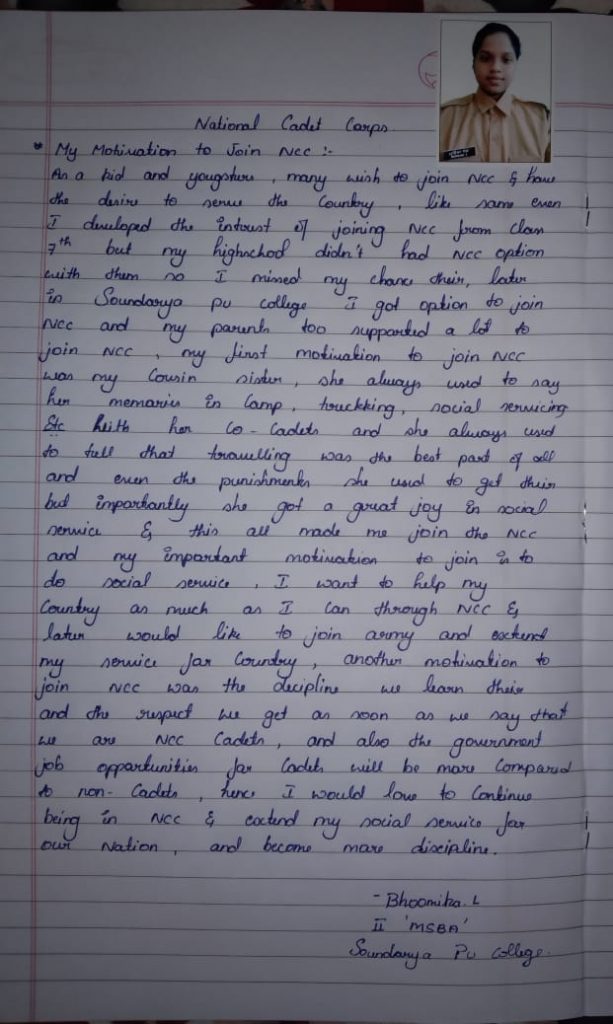 National Cadet Corps
* My Motivation to Join NCC :-
As a kid and yougsters, many wish to join NCC & have
the desire to serve the Country, like same even
I developed the intrust of joining NCC from class
7th but my highschool didn't had NCC option
with them so I missed my chance their, later
in Soundarya PU college I got option to join
NCC and my parents too supported a lot to
join NCC, my first motivation to join NCC
was my Cousin sister, she always used to say
her memories in Camp, truckking, social servicing
Etc with her Co-Cadets and she always used
to tell that travelling was the best part of all
and even the punishments she used to get their
but importantly she got a great joy in social
service & this all made me join the NCC
and my important motivation to join is to
do social service, I want to help my
Country as much as I can through NCC &
later would like to join army and extend
my service for Country, another motivation to
join NCC was the decipline we learn their
and the respect we get as soon as we say that
we are NCC Cadets, and also the government
job opportunities for Cadets will be more Compared
to non-Cadets, hence I would love to Continue
being in NCC & extend my social service for
our Nation, and become more discipline.
- Bhoomika. L
II 'MSBA'
Soundarya PU College.